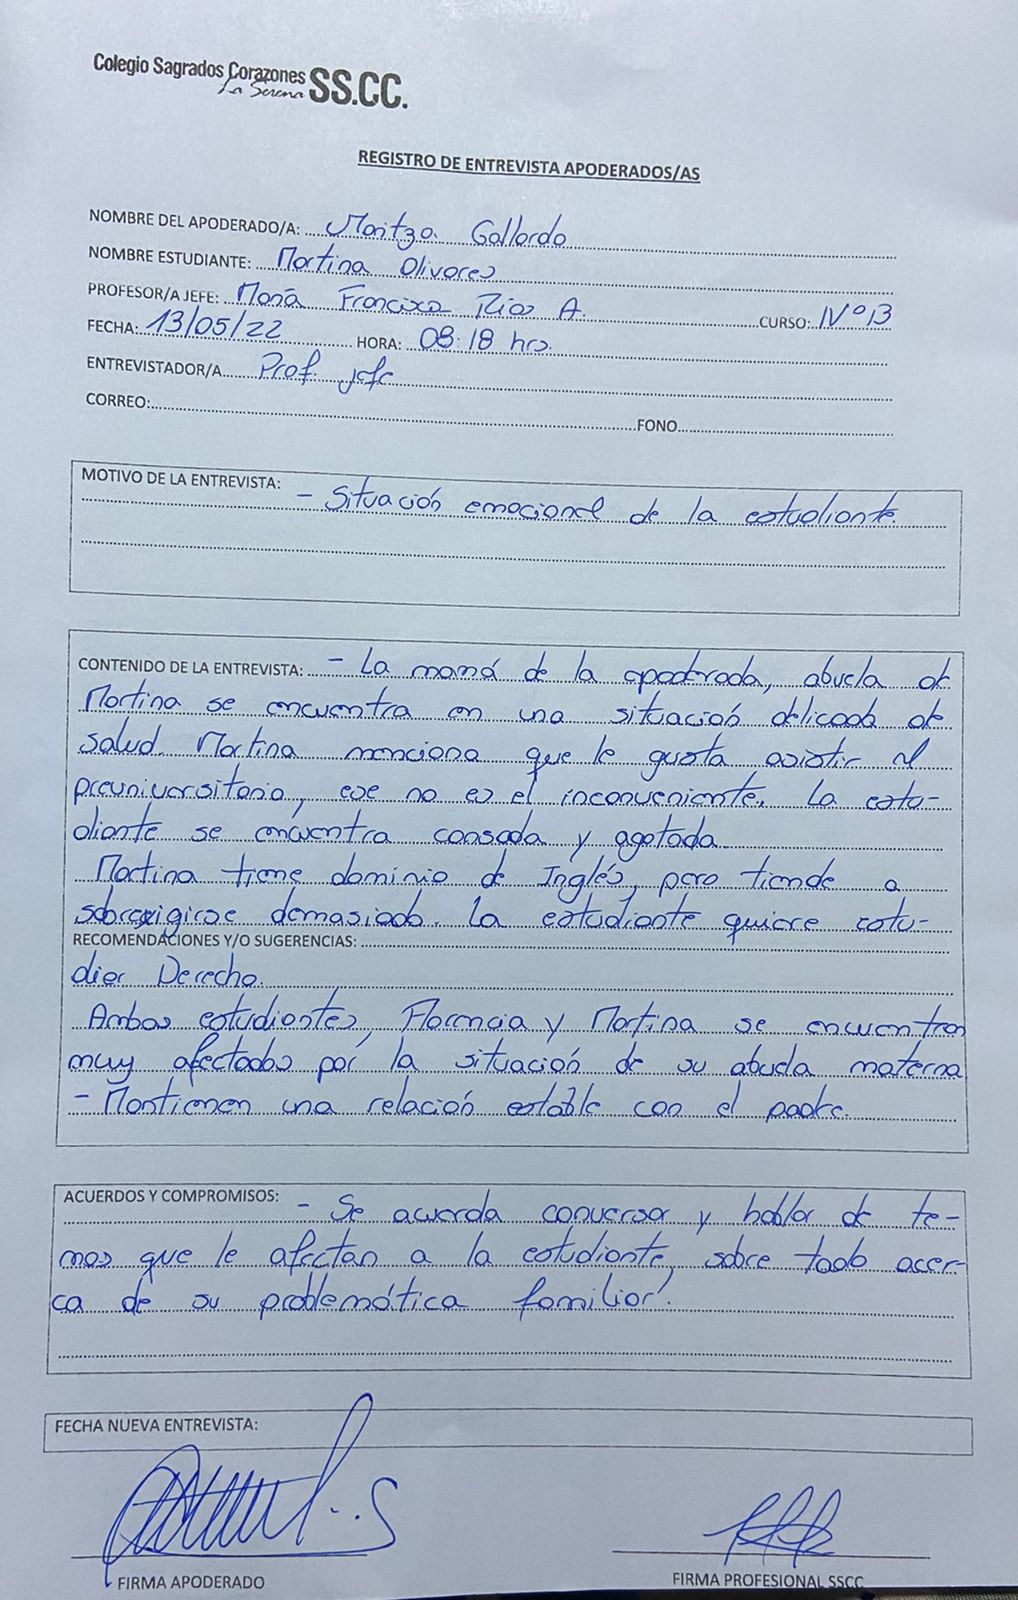 Colegio Sagrados Corazones SS.CC.
La Serena
REGISTRO DE ENTREVISTA APODERADOS/AS
NOMBRE DEL APODERADO/A: Maritza Gallardo
NOMBRE ESTUDIANTE: Martina Olivares
PROFESOR/A JEFE: María Francisca Ríos A. CURSO: IVºB
FECHA: 13/05/22 HORA: 08:18 hrs.
ENTREVISTADOR/A Prof. jefe
CORREO: FONO
MOTIVO DE LA ENTREVISTA: - Situación emocional de la estudiante.
CONTENIDO DE LA ENTREVISTA: - La mamá de la apoderada, abuela de
Martina se encuentra en una situación delicada de
salud. Martina menciona que le gusta asistir al
preuniversitario, ese no es el inconveniente. La estu-
diante se encuentra cansada y agotada
Martina tiene dominio de Inglés, pero tiende a
sobrexigirse demasiado. La estudiante quiere estu-
RECOMENDACIONES Y/O SUGERENCIAS:
diar Derecho.
Ambas estudiantes, Florencia y Martina se encuentran
muy afectadas por la situación de su abuela materna
- Mantienen una relación estable con el padre.
ACUERDOS Y COMPROMISOS: - Se acuerda conversar y hablar de te-
mas que le afectan a la estudiante, sobre todo acer-
ca de su problemática familiar.
FECHA NUEVA ENTREVISTA:
FIRMA APODERADO FIRMA PROFESIONAL SSCC